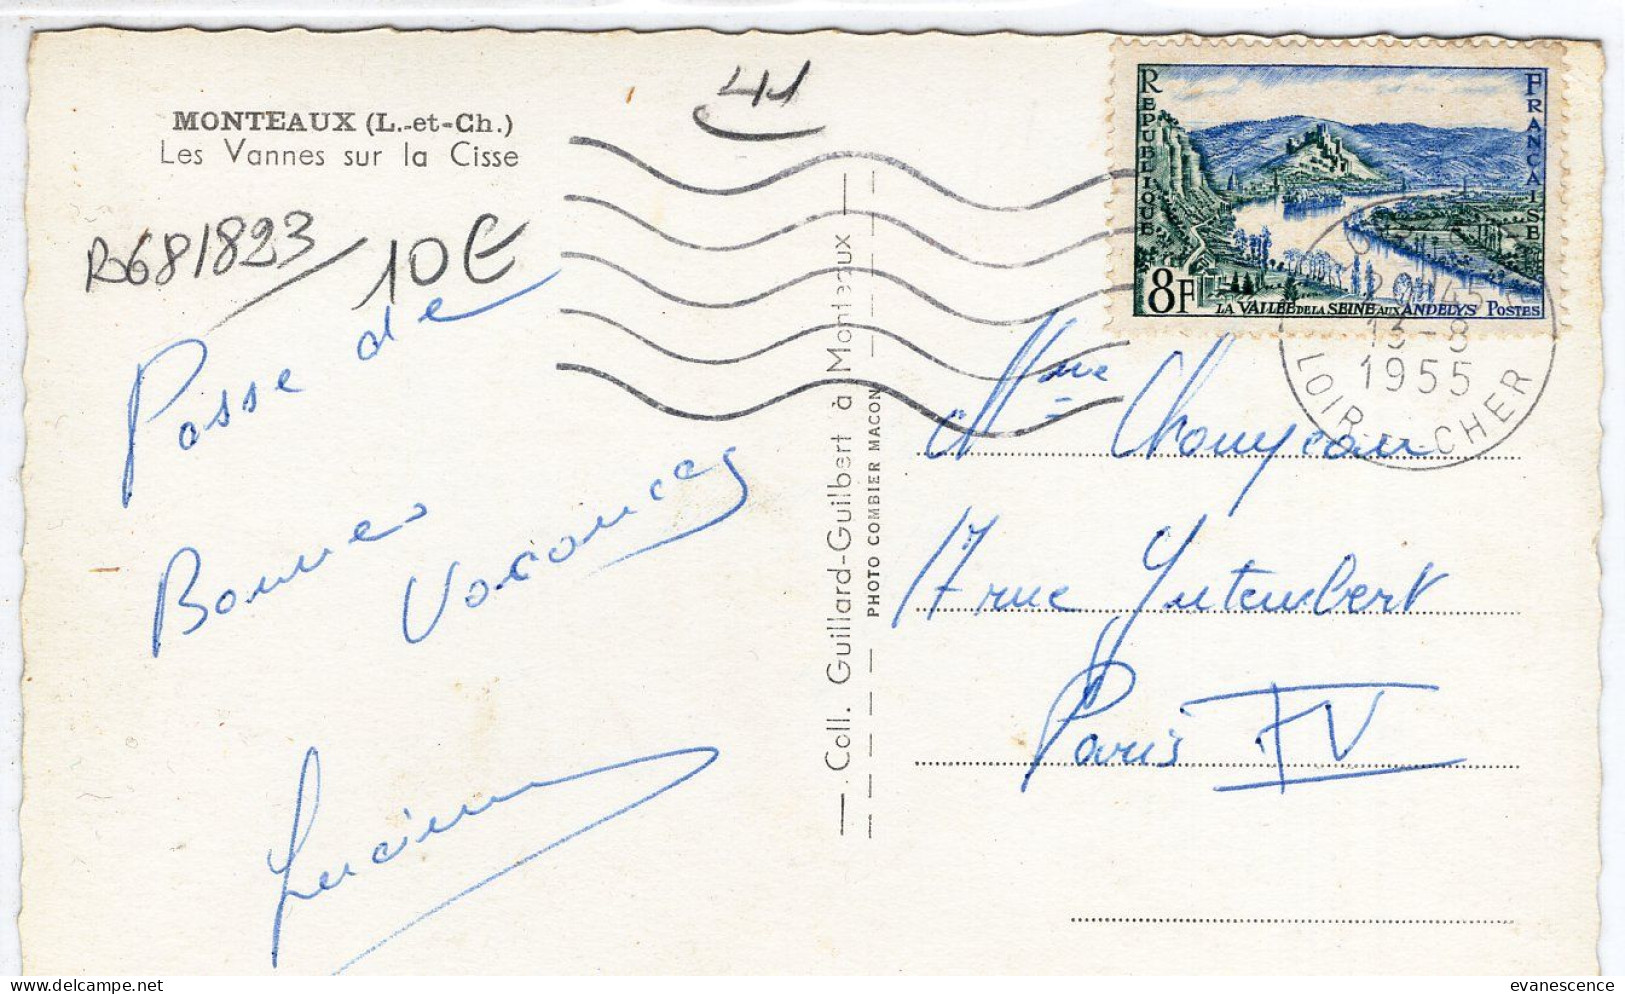 MONTEAUX (L.-et-Ch.)
Les Vannes sur la Cisse
41
R68/823
10€
Passe de
Bonnes
Vacances
Lucienne
Coll. Guillard-Guilbert à Monteaux
PHOTO COMBIER MACON
REPUBLIQUE FRANCAISE
8F
LA VALLÉE DE LA SEINE AUX ANDELYS POSTES
20H45
13-8
1955
LOIR-ET-CHER
Mme
17 rue Gutemberg
Paris XV
evanescence
delcampe.net